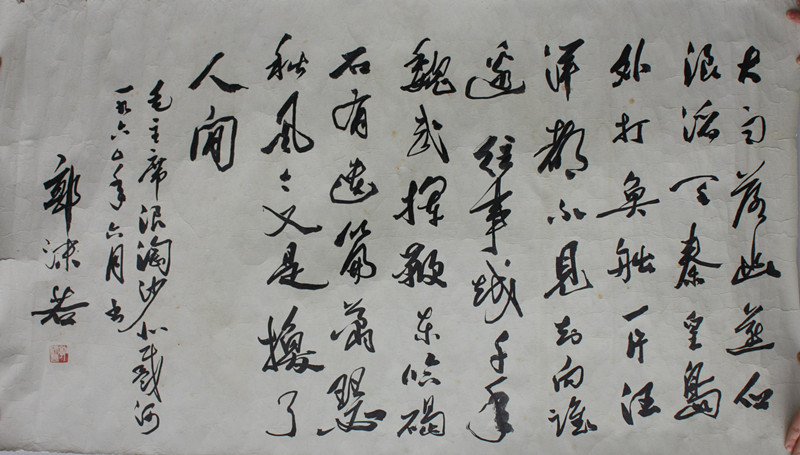 大雨落幽燕白
浪滔天秦皇島
外打魚船一片汪
洋都不見知向誰
邊往事越千年
魏武揮鞭東臨碣
石有遺篇蕭瑟
秋風今又是換了
人間
毛主席浪淘沙北戴河
一九六五年六月書
郭沫若